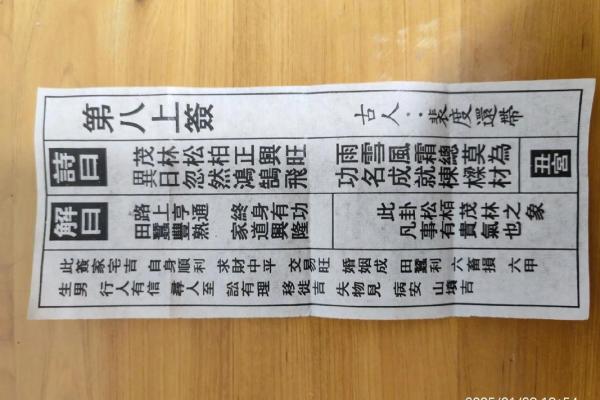 第八上簽
古人：裴度還帶
詩曰
茂林松柏正興旺
雨雪風霜總莫為
異日忽然鴻鵠飛
功名成就棟樑材
丑宮
解曰
路上亨通
田蠶豐熟
終身有功
家道興隆
此卦松栢茂林之象
凡事有貴氣也
此簽家宅吉 自身順利 求財中平 交易旺 婚姻成 田蠶利 六畜損 六甲
生男 行人有信 尋人至 訟有理 移徙吉 失物見 病安 山墳吉